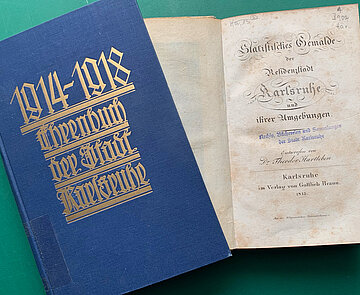 1914-1918
Ehrenbuch
der Stadt
Karlsruhe
Statistisches Gemälde
der
Residenzstadt
Karlsruhe
und
ihrer Umgebungen
Archiv, Bücherei und Sammlungen
der Stadt Karlsruhe
Entworfen von
Dr. Theodor Hartleben
Karlsruhe
im Verlag von Gottlieb Braun.
1815.